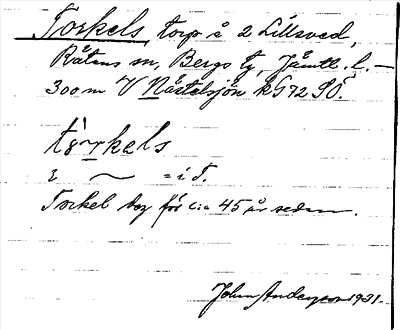 Torkels, torp å 2 Lillsved,
Rätans sn, Bergs tg, Jämtl. l. —
300 m V Nästelsjön kG72 SO.
tò̀rkels
i ~ = i T.
Torkel bog för c:a 45 år sedan.
John Anderson 1931.